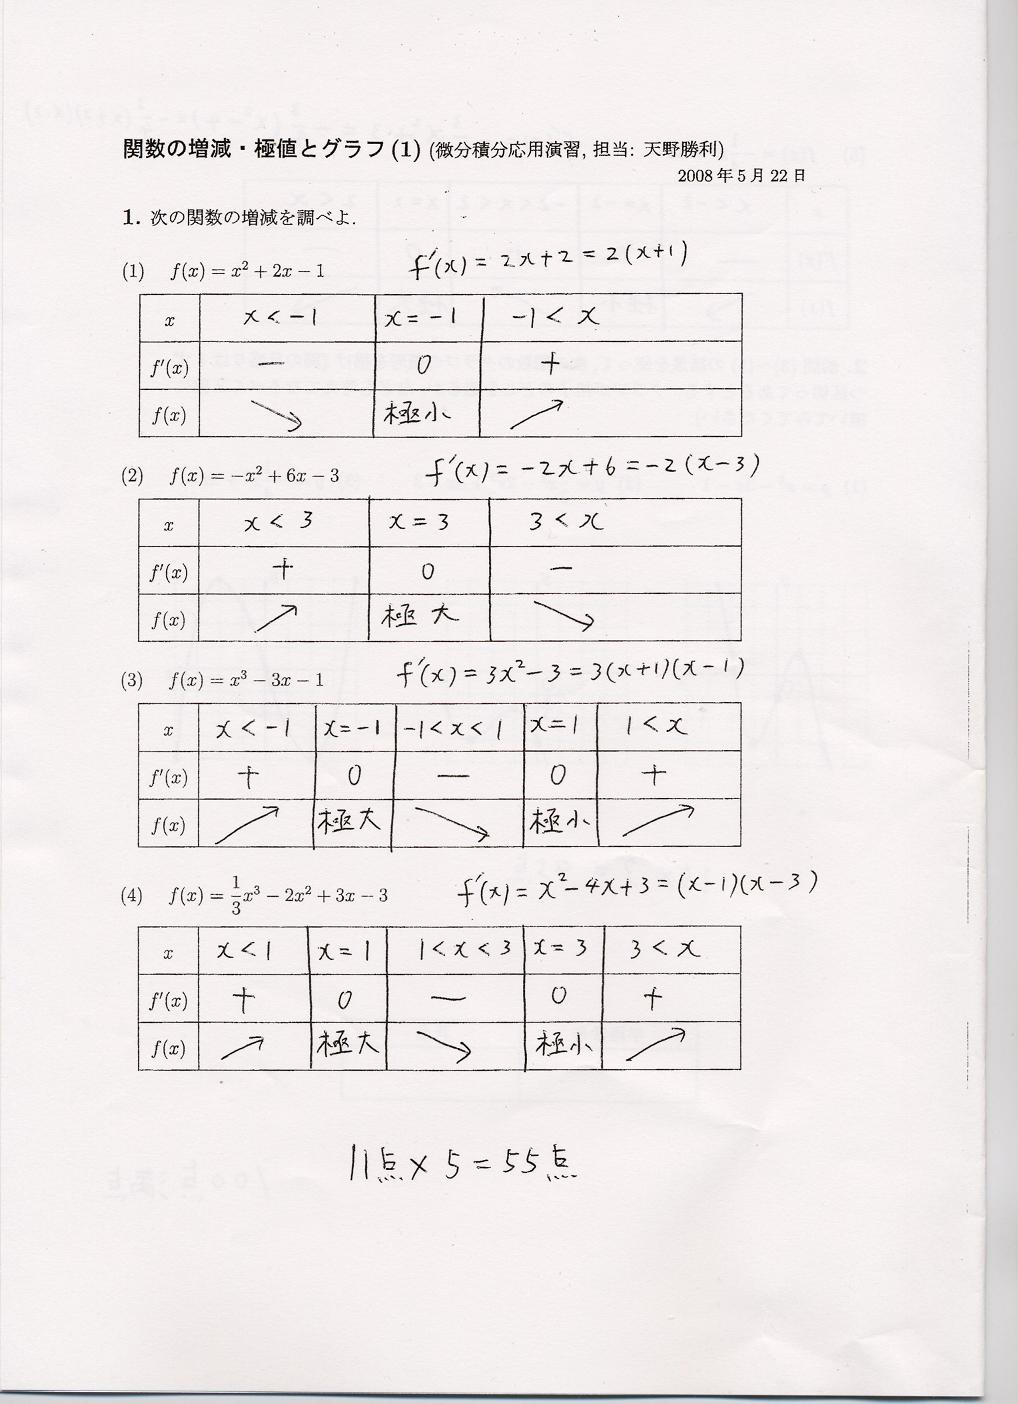 関数の増減・極値とグラフ (1) (微分積分応用演習, 担当: 天野勝利)
2008 年 5 月 22 日
1. 次の関数の増減を調べよ.
(1) f(x) = x² + 2x − 1 f'(x) = 2x+2 = 2(x+1)
x x < -1 x = -1 -1 < x
f'(x) − 0 +
f(x) ↘ 極小 ↗
(2) f(x) = −x² + 6x − 3 f'(x) = -2x+6 = -2(x-3)
x x < 3 x = 3 3 < x
f'(x) + 0 −
f(x) ↗ 極大 ↘
(3) f(x) = x³ − 3x − 1 f'(x) = 3x²-3 = 3(x+1)(x-1)
x x < -1 x=-1 -1 < x < 1 x=1 1 < x
f'(x) + 0 − 0 +
f(x) ↗ 極大 ↘ 極小 ↗
(4) f(x) = 1/3 x³ − 2x² + 3x − 3 f'(x) = x²-4x+3 = (x-1)(x-3)
x x < 1 x = 1 1 < x < 3 x = 3 3 < x
f'(x) + 0 − 0 +
f(x) ↗ 極大 ↘ 極小 ↗
11点 × 5 = 55点